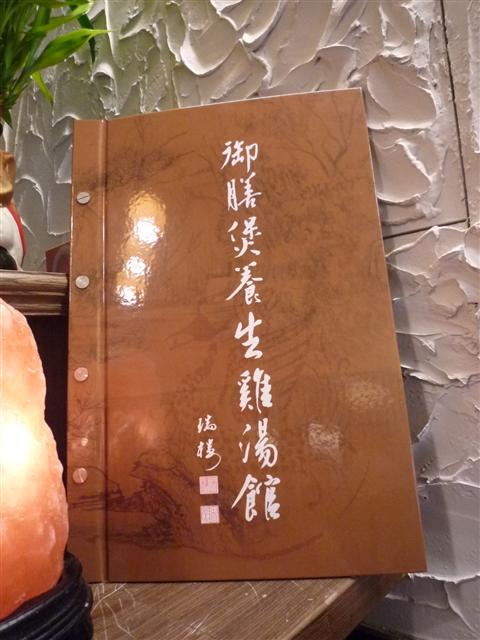 御膳煲養生雞湯館
瑞樓